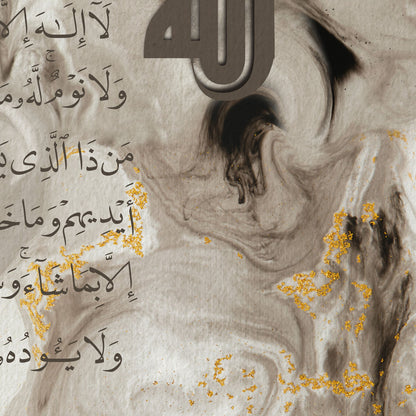 الله
لَآ إِلَـٰهَ إِلَّا
وَلَا نَوْمٌ ۚ لَّهُۥ وَمَا
مَن ذَا ٱلَّذِى
أَيْدِيهِمْ وَمَا
إِلَّا بِمَا شَآءَ ۚ
وَلَا يَـُٔودُهُۥ